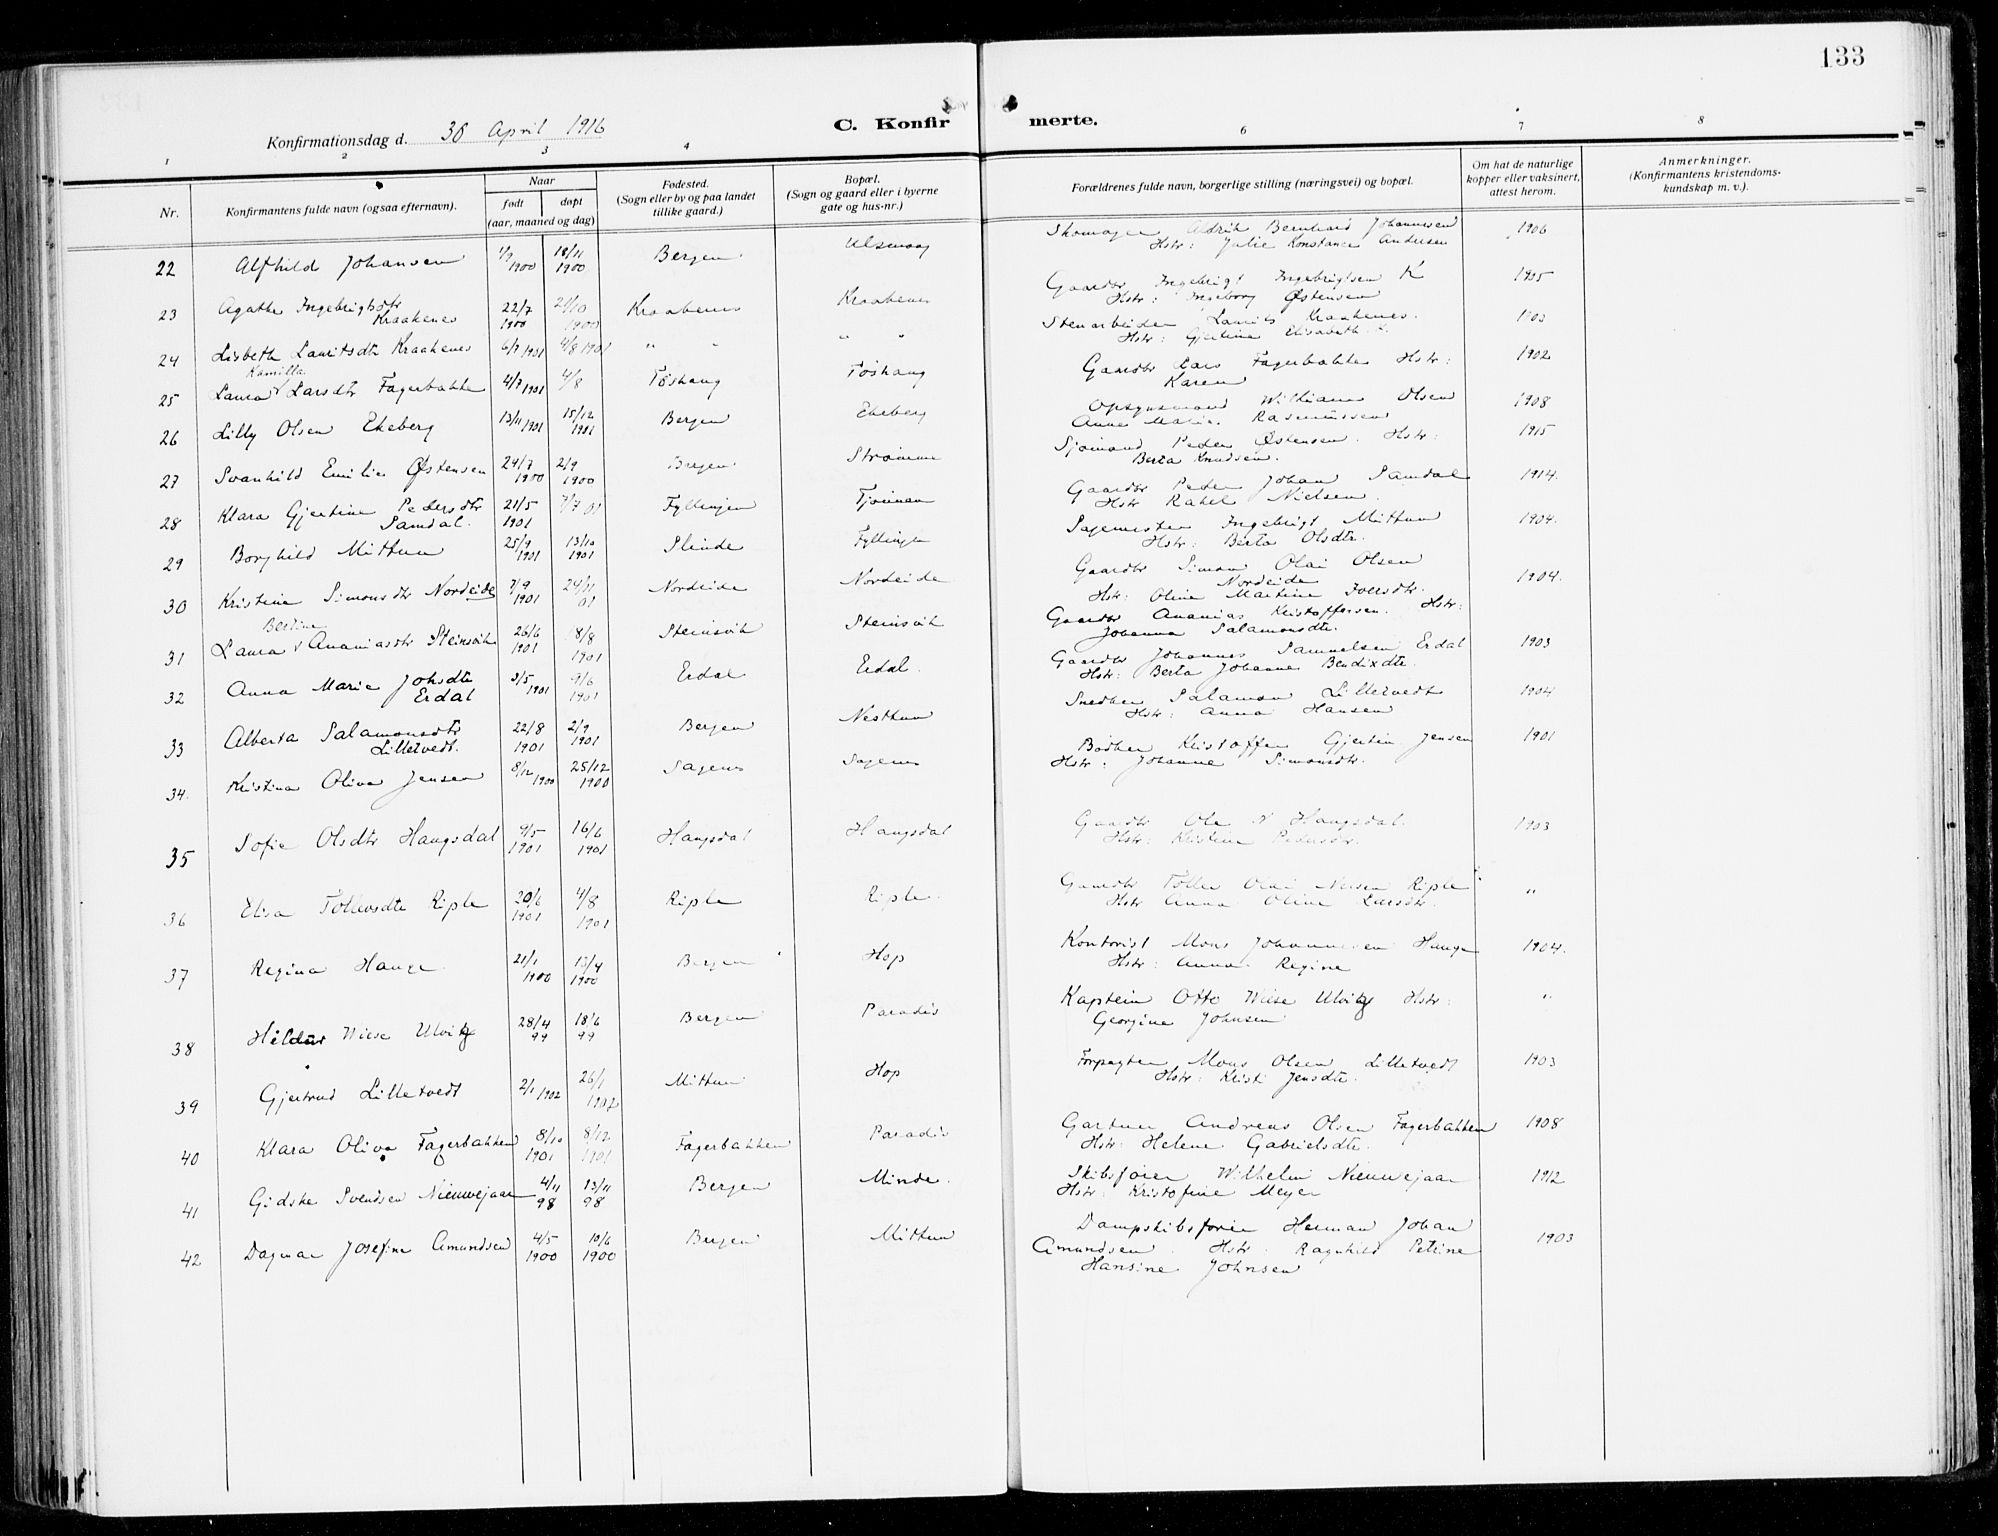 133
Konfirmationsdag d. 30 April 1916
C. Konfirmerte.
1 2 3 4 6 7 8
Nr. | Konfirmantens fulde navn (ogsaa efternavn). | Naar født døpt (aar, maaned og dag) | Fødested. (Sogn eller by og paa landet tillike gaard.) | Bopæl. (Sogn og gaard eller i byerne gate og hus-nr.) | Forældrenes fulde navn, borgerlige stilling (næringsvei) og bopæl. | Om hat de naturlige kopper eller vaksinert, attest herom. | Anmerkninger. (Konfirmantens kristendomskundskap m. v.).
22 Alfhild Johansen 1/9 1900 18/11 1900 Bergen Ulsmaag Skomager Aldrik Bernhard Johannesen Hstr: Julie Konstance Andersen 1906
23 Agathe Ingebrigtsdtr Kraakenes 22/7 1900 21/10 1900 Kraakenes Kraakenes Gaardbr Ingebrigt Ingebrigtsen K Hstr: Ingeborg Østensen 1905
24 Lisbeth Lauritsdtr Kraakenes 6/7 1901 4/8 1901 " " " " Stenarbeider Laurits Kraakenes. Hstr: Gjertine Elisabeth K. 1903
25 Laura Kamilla Larsdtr Fagerbakke 4/7 1901 4/8 Tøshaug Tøshaug Gaardbr Lars Fagerbakke Hstr: Karen 1902
26 Lilly Olsen Ekeberg 13/11 1901 15/12 1901 Bergen Ekeberg Opsynsmand William Olsen Anne Marie Rasmussen 1908
27 Svanhild Emilie Østensen 24/7 1900 2/9 1900 Bergen Strømme Sjømand Peder Østensen. Hstr: Berta Knudsen. 1915
28 Klara Gjertine Pedersdtr Samdal. 21/5 1901 7/7 01 Fyllingen Gaardbr Peder Johan Samdal Hstr Rakel Nielsen. 1914.
29 Borghild Mittun 25/9 1901 13/10 1901 Slinde Fyllingen Sagmester Ingebrigt Mittun Hstr: Berta Olsdtr. 1904.
30 Kristine Simonsdtr Nordeide 7/9 1901 24/11 01 Nordeide Nordeide Gaardbr Simon Olai Olsen Nordeide Hstr: Oline Martine Iversdtr. 1904.
31 Laura Bertine Ananiasdtr Steinsvik 26/6 1901 8/8 1901 Steinsvik Steinsvik Gaardbr Ananias Kristoffersen. Hstr: Johanna Salamonsdtr.
32 Anna Marie Johsdtr Erdal 3/5 1901 9/6 1901 Erdal Erdal. Gaardbr Johannes Samuelsen Erdal Hstr: Berta Johanne Bendixdtr. 1903
33 Alberta Salamonsdtr Lilletvedt. 22/8 1901 2/9 1901 Bergen Nesttun Snedker Salamon Lilletvedt Hstr: Anna Hansen 1904
34. Kristina Oliva Jensen 8/12 1900 25/12 1900 Sagenes Sagenes Bødker Kristoffer Gjertin Jensen Hstr: Johanne Simonsdtr. 1901
35 Sofie Olsdtr Haugsdal 9/5 1901 16/6 1901 Haugsdal Haugsdal Gaardbr Ole N Haugsdal. Hstr: Kristine Pedersdtr. 1903
36 Elisa Tollevsdtr Riple 20/6 1901 4/8 1901 Riple Riple. Gaardbr Tollev Olai Riple Hstr Anna Oline Larsdtr. "
37 Regina Hauge. 21/1 1900 13/4 1900 Bergen Hop Kontorist Mons Johannesen Hauge Hstr: Anna Regine 1904.
38 Hildur Wiese Ulvitz 28/4 99 18/6 99 Bergen Paradis Kaptein Otto Wiese Ulvitz Hstr: Georgine Johnsen "
39 Gjertrud Lilletvedt 2/1 1902 26/1 1902 Mittun Hop Forpagter Mons Olsen Lilletvedt Hstr: Kristi Jensdtr. 1903
40 Klara Oliva Fagerbakken 8/10 1901 8/12 1901 Fagerbakken Paradis Gartner Andreas Olsen Fagerbakken Hstr: Helene Gabrielsdtr. 1908
41 Gidske Svendsen Nieuwejaar 4/11 98 13/11 98 Bergen Minde. Skibsfører Wilhelm Nieuwejaar Hstr: Kristofine Meyer 1912
42 Dagmar Josefine Amundsen 4/5 1900 10/6 1900 Bergen Mittun Dampskibsfører Herman Johan Amundsen. Hstr: Ragnhild Petrine Hansine Johnsen 1903